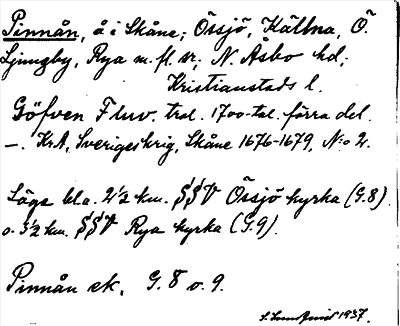 Pinnån, å i Skåne; Össjö, Källna, Ö.
Ljungby, Rya m. fl. sr; N. Åsbo hd;
Kristianstads l.
Göfven Fluv. trol. 1700-tal. förra del.
–. KrA, Sverigeskrig, Skåne 1676-1679, N:o 2.
Läge bl.a. 2 1/2 km. SSV Össjö kyrka (G.8).
o. 3 1/2 km. SSV Rya kyrka (G.9).
Pinnån ek. G. 8 o. 9.
1937.